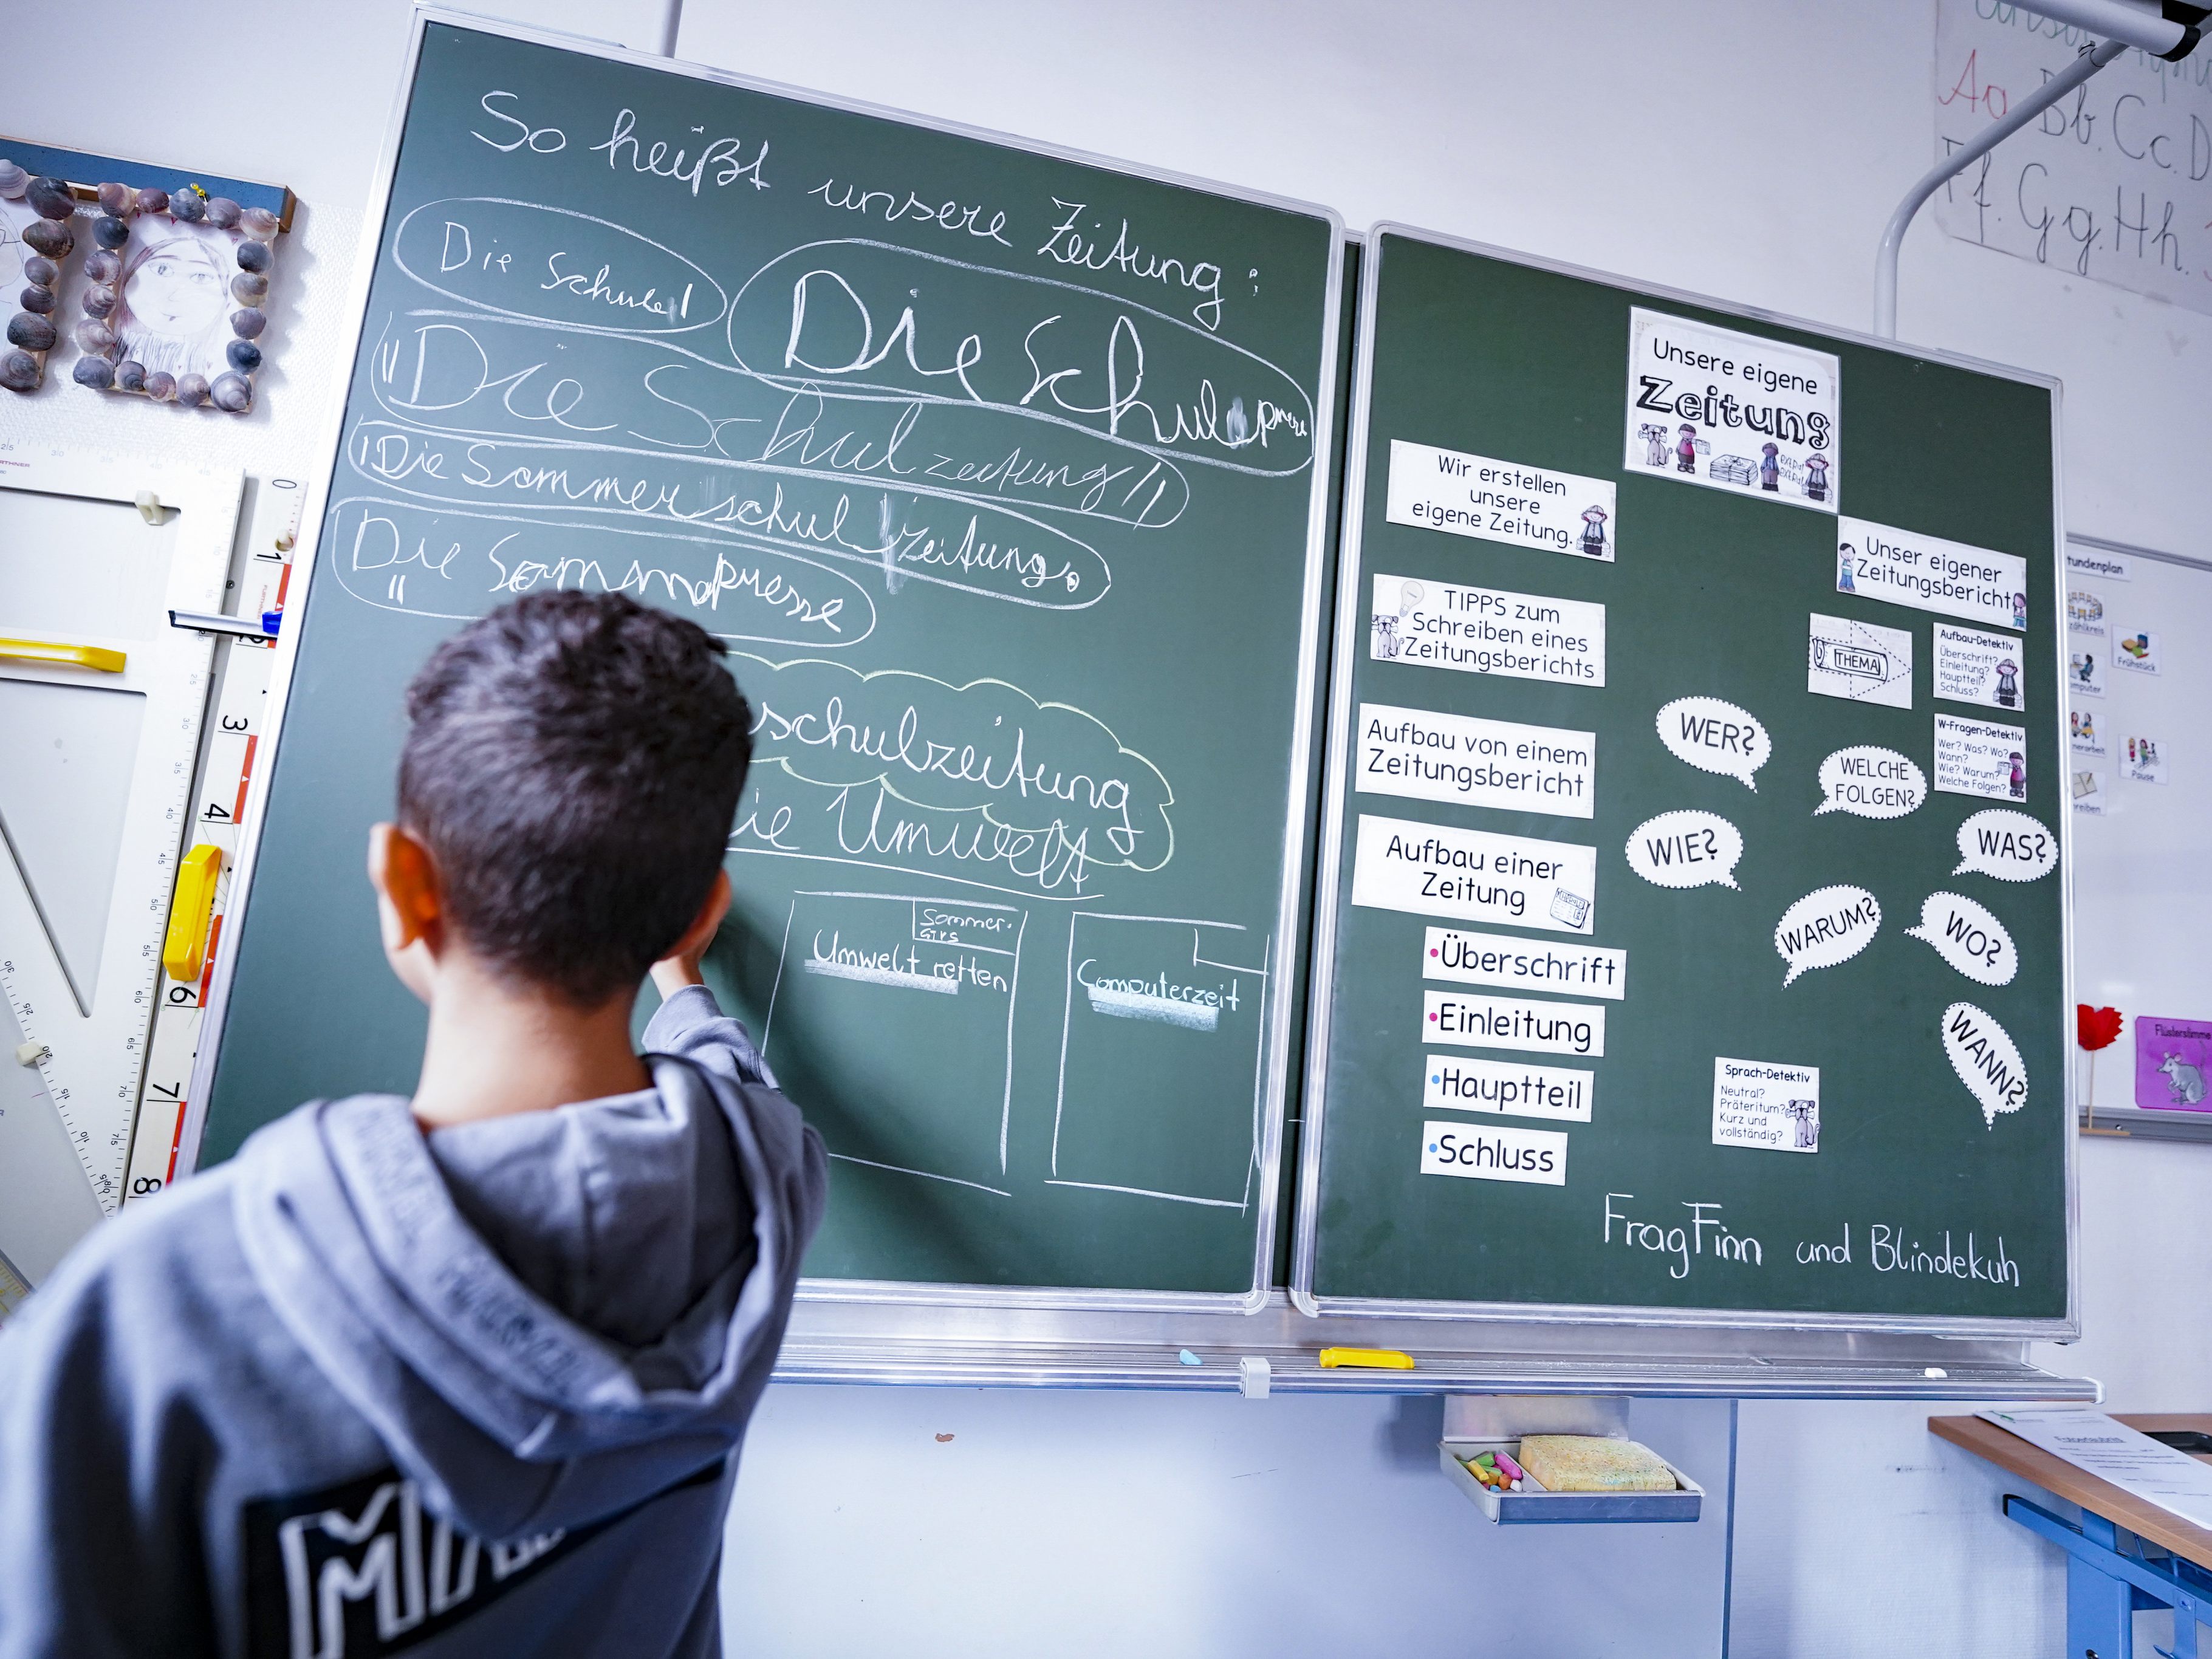 So heißt unsere Zeitung:
Die Schule
Die Schulpresse
"Die Schulzeitung"
Die Sommerschul zeitung
Die Sommpresse
schulzeitung
ie Umwelt
Sommer-
Umwelt retten
Computerzeit
Unsere eigene
Zeitung
Wir erstellen
unsere
eigene Zeitung.
Unser eigener
Zeitungsbericht
TIPPS zum
Schreiben eines
Zeitungsberichts
THEMA
Aufbau-Detektiv
Überschrift?
Einleitung?
Hauptteil?
Schluss?
Aufbau von einem
Zeitungsbericht
WER?
WELCHE
FOLGEN?
W-Fragen-Detektiv
Wer? Was? Wo?
Wann?
Wie? Warum?
Welche Folgen?
Aufbau einer
Zeitung
WIE?
WAS?
WARUM?
WO?
WANN?
•Überschrift
•Einleitung
•Hauptteil
•Schluss
Sprach-Detektiv
Neutral?
Präteritum?
Kurz und
vollständig?
FragFinn und Blindekuh
Aa Bb. Cc. D
Ff. Gg. Hh.
tundenplan
Frühstück
Pause
Flüsterstimme
0
1
3
4
6
7
8